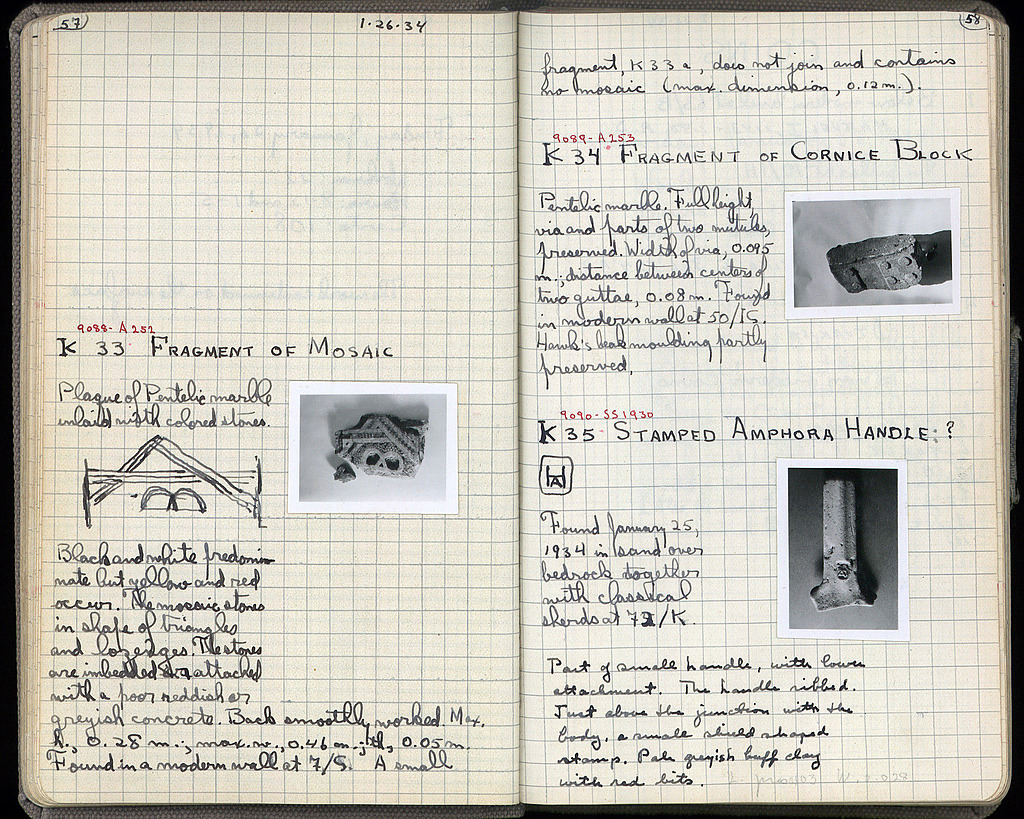 57
1·26·34
9088-A252
K 33 FRAGMENT OF MOSAIC
Plaque of Pentelic marble
inlaid with colored stones.
Black and white predomi-
nate but yellow and red
occur. The mosaic stones
in shape of triangles
and lozenges. The stones
are imbedded attached
with a poor reddish or
greyish concrete. Back smoothly worked. Max.
h., 0.28 m.; max. w., 0.46 m.; th., 0.05 m.
Found in a modern wall at 7/S. A small
58
fragment, K 33 a, does not join and contains
no mosaic (max. dimension, 0.12 m.).
9089-A253
K 34 FRAGMENT OF CORNICE BLOCK
Pentelic marble. Full height,
via and parts of two mutules,
preserved. Width of via, 0.095
m.; distance between centers of
two guttae, 0.08 m. Found
in modern wall at 50/
Hawk's beak moulding partly
preserved.
9090-SS1930
K 35 STAMPED AMPHORA HANDLE: ?
HA
Found January 25,
1934 in sand over
bedrock together
with classical
sherds at /K.
Part of small handle, with lower
attachment. The handle ribbed.
Just above the junction with the
body, a small shield shaped
stamp. Pale greyish buff clay
with red bits.